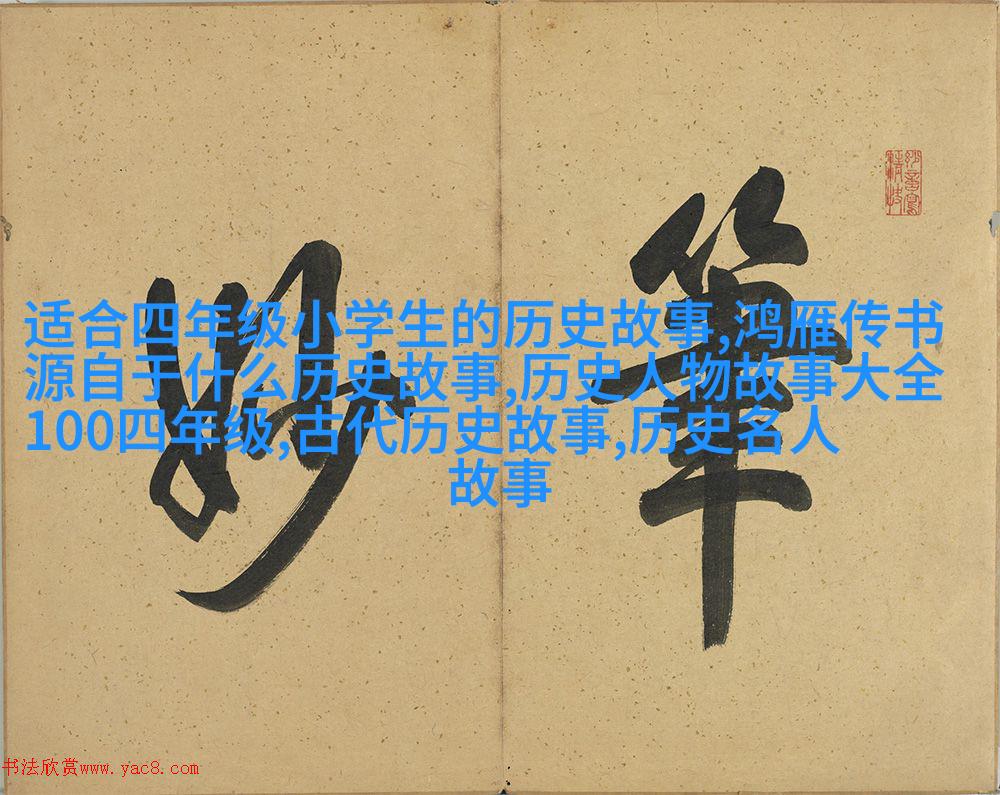 筆
妙
适合四年级小学生的历史故事,鸿雁传书
源自于什么历史故事,历史人物故事大全
100四年级,古代历史故事,历史名人
故事
书法欣赏www.yac8.com